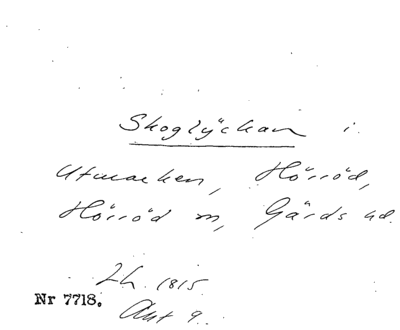 Skoglyckan i
Utmarken, Hörröd,
Hörröd sn, Gärds hd.
Lh. 1815.
Nr 7718.
Akt 9.